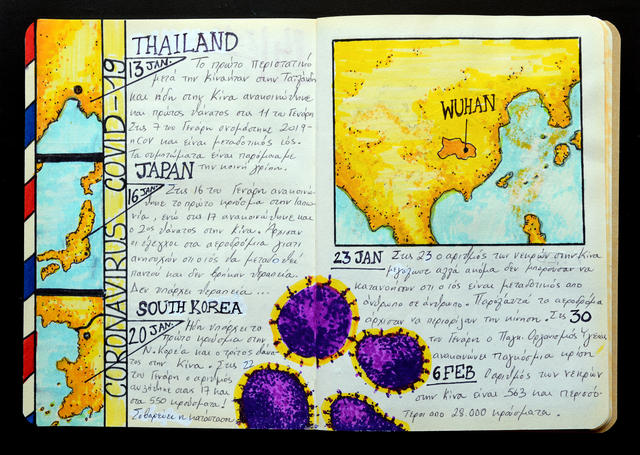 CORONAVIRUS COVID-19
THAILAND
13 JAN. Το πρώτο περιστατικό
μετά την Κίνα ήταν στην Ταϊλάνδη
και ήδη στην Κίνα ανακοινώθηκε
και πρώτος θάνατος στι 11 του Γενάρη
Στις 7 του Γενάρη ονομάστηκε 2019-
nCov και είναι μεταδοτικός ιός.
Τα συμπτώματα είναι παρόμοια με
την κοινή γρίπη.
JAPAN
16 JAN. Στις 16 του Γενάρη ανακοινώ-
θηκε το πρώτο κρούσμα στην Ιαπω-
νία, ενώ στις 17 ανακοινώθηκε και
ο 2ος θάνατος στην Κίνα. Άρχισαν
οι έλεγχοι στα αεροδρόμια γιατί
ανησυχούν ότι ο ιός θα μεταδοθεί
παντού και δεν θα βρουν θεραπεία.
Δεν υπάρχει θεραπεία...
SOUTH KOREA
20 JAN. Ήδη υπάρχει το
πρώτο κρούσμα στην
Ν. Κορέα και ο τρίτος θανα-
τος στην Κίνα. Στις 22
του Γενάρη ο αριθμός
αυξήθηκε στους 17 και
στα 550 κρούσματα!
Σοβαρεύει η κατάσταση
WUHAN
23 JAN Στις 23 ο αριθμός των νεκρών στην Κίνα
μεγάλωσε αλλά ακόμα δεν μπορούσαν να
κατανοήσουν ότι ο ιός είναι μεταδοτικός από
άνθρωπο σε άνθρωπο. Παρόλαυτά τα αεροδρόμια
άρχισαν να περιορίζουν την κίνηση. Στις 30
του Γενάρη ο Παγκ. Οργανισμός Υγείας
ανακοινώνει παγκόσμια κρίση
6 FEB Ο αριθμός των νεκρών
στην Κίνα είναι 563 και περισσό-
τερα από 28.000 κρούσματα.